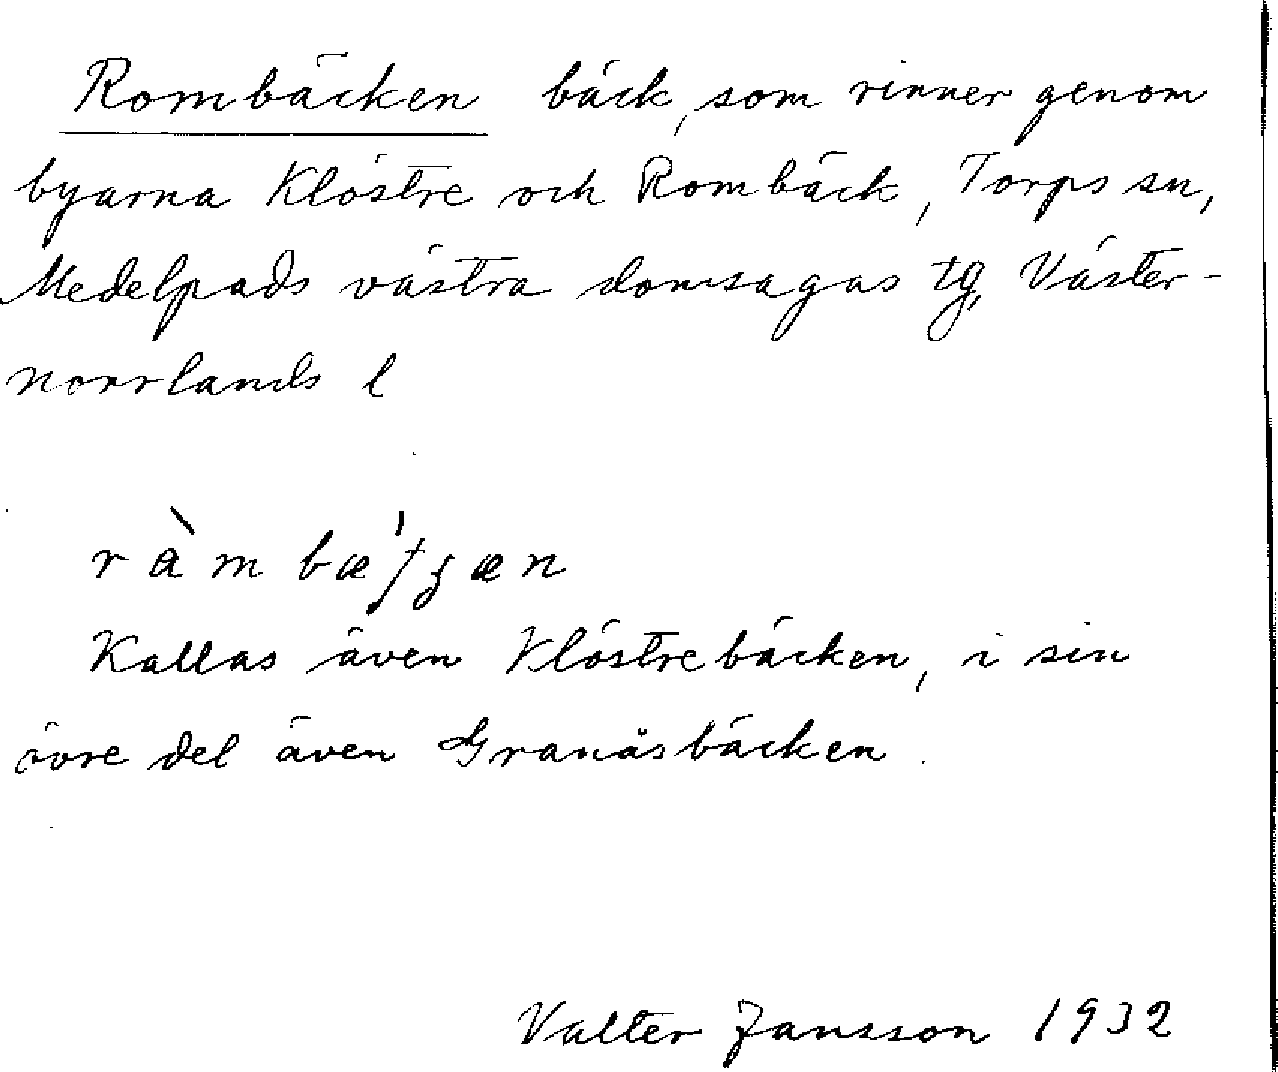 Rombäcken bäck, som rinner genom
byarna Klöstre och Rombäck, Torps sn,
Medelpads västra domsagas tg, Väster-
norrlands l
Kallas även Klöstrebäcken, i sin
övre del även Granåsbäcken.
Valter Jansson 1932